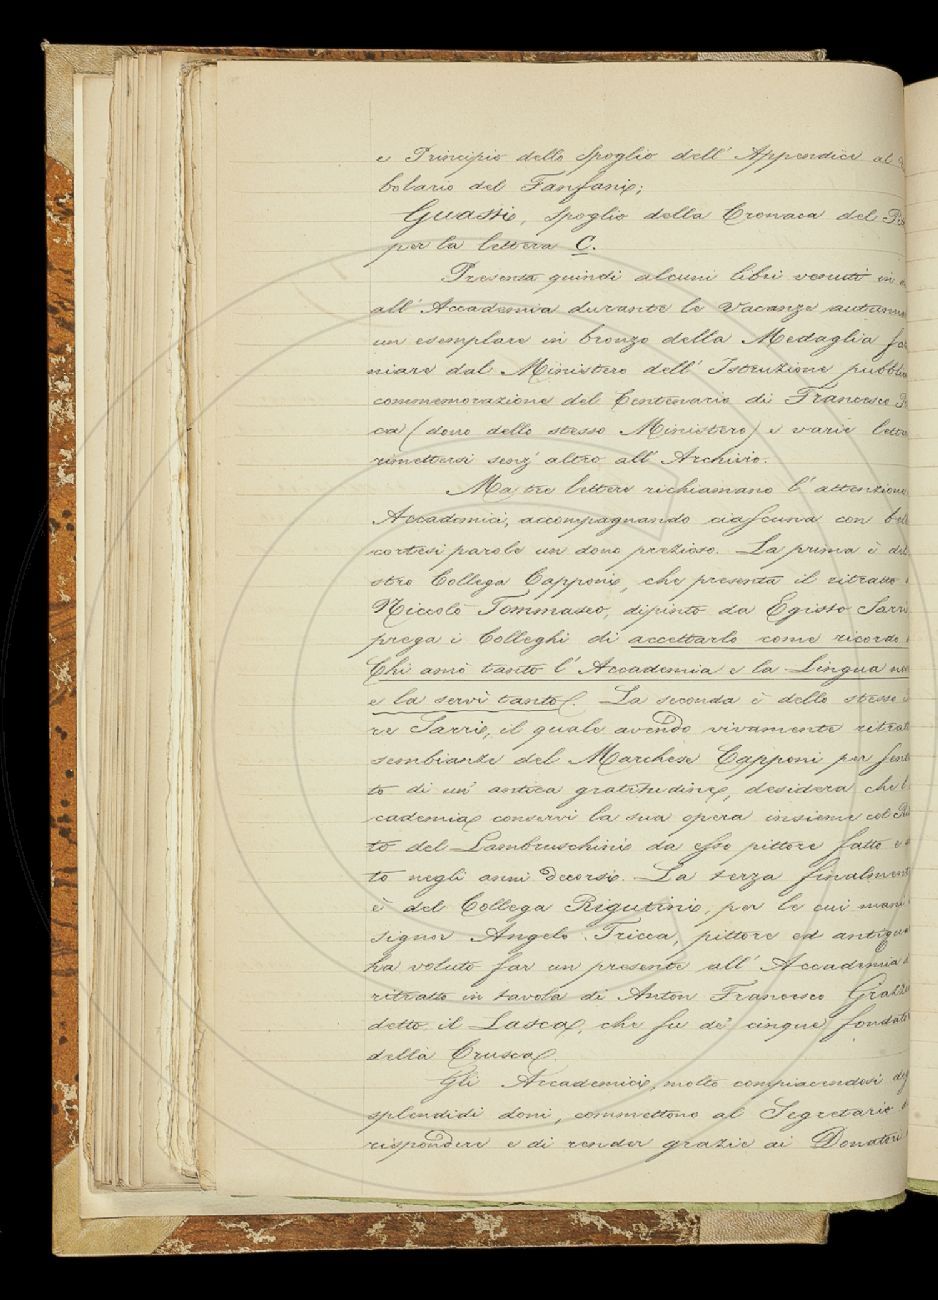 e Principio dello Spoglio dell' Appendice al
bolario del Fanfani;
Guasti, Spoglio della Cronaca del
per la lettera C.
Presenta quindi alcuni libri venuti in
all' Accademia durante le vacanze autunn
un esemplare in bronzo della Medaglia fa
niare dal Ministero dell' Istruzione pubblic
commemorazione del Centenario di Francesco
ca (dono dello stesso Ministero) e varie lette
rimettersi senz' altro all' Archivio.
Ma tre lettere richiamano l' attenzione
Accademici, accompagnando ciascuna con bel
cortesi parole un dono prezioso. La prima è del
stro Collega Capponi, che presenta il ritratto
Niccolò Tommaseo, dipinto da Egisto Sarri
prega i Colleghi di accettarlo come ricordo
Chi amò tanto l' Accademia e la Lingua no
e la servì tanto. La seconda è dello stesso
re Sarri, il quale avendo vivamente ritrat
sembianze del Marchese Capponi per sent
to di un' antica gratitudine, desidera che l'
cademia conservi la sua opera insieme col
to del Lambruschini da esso pittore fatto e
to negli anni decorsi. La terza finalment
è del Collega Rigutini, per le cui man
signor Angelo Tricca, pittore ed antiqua
ha voluto far un presente all' Accademia d
ritratto in tavola di Anton Francesco Grazz
detto il Lasca, che fu de' cinque fondato
della Crusca.
Gli Accademici, molto compiacendosi deg
splendidi doni, commettono al Segretario
rispondere e di render grazie ai Donatori